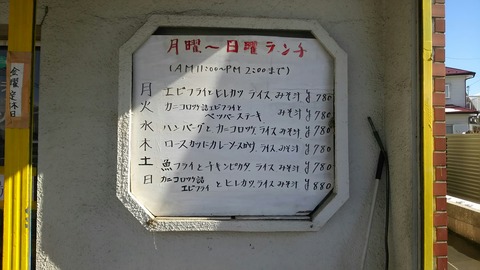 月曜～日曜ランチ
(AM11:00～PM2:00まで)
月 エビフライとヒレカツ ライス みそ汁 ¥780
火 カニコロッケ エビフライと
ペッパーステーキ みそ汁 ¥780
水 ハンバーグとカニコロッケ ライス みそ汁 ¥780
木 ロースカツにカレーソースかけ みそ汁 ¥780
土 魚フライとチキンピカタ ライス みそ汁 ¥780
日 カニコロッケ
エビフライ とヒレカツ ライス みそ汁 ¥880
金曜定休日